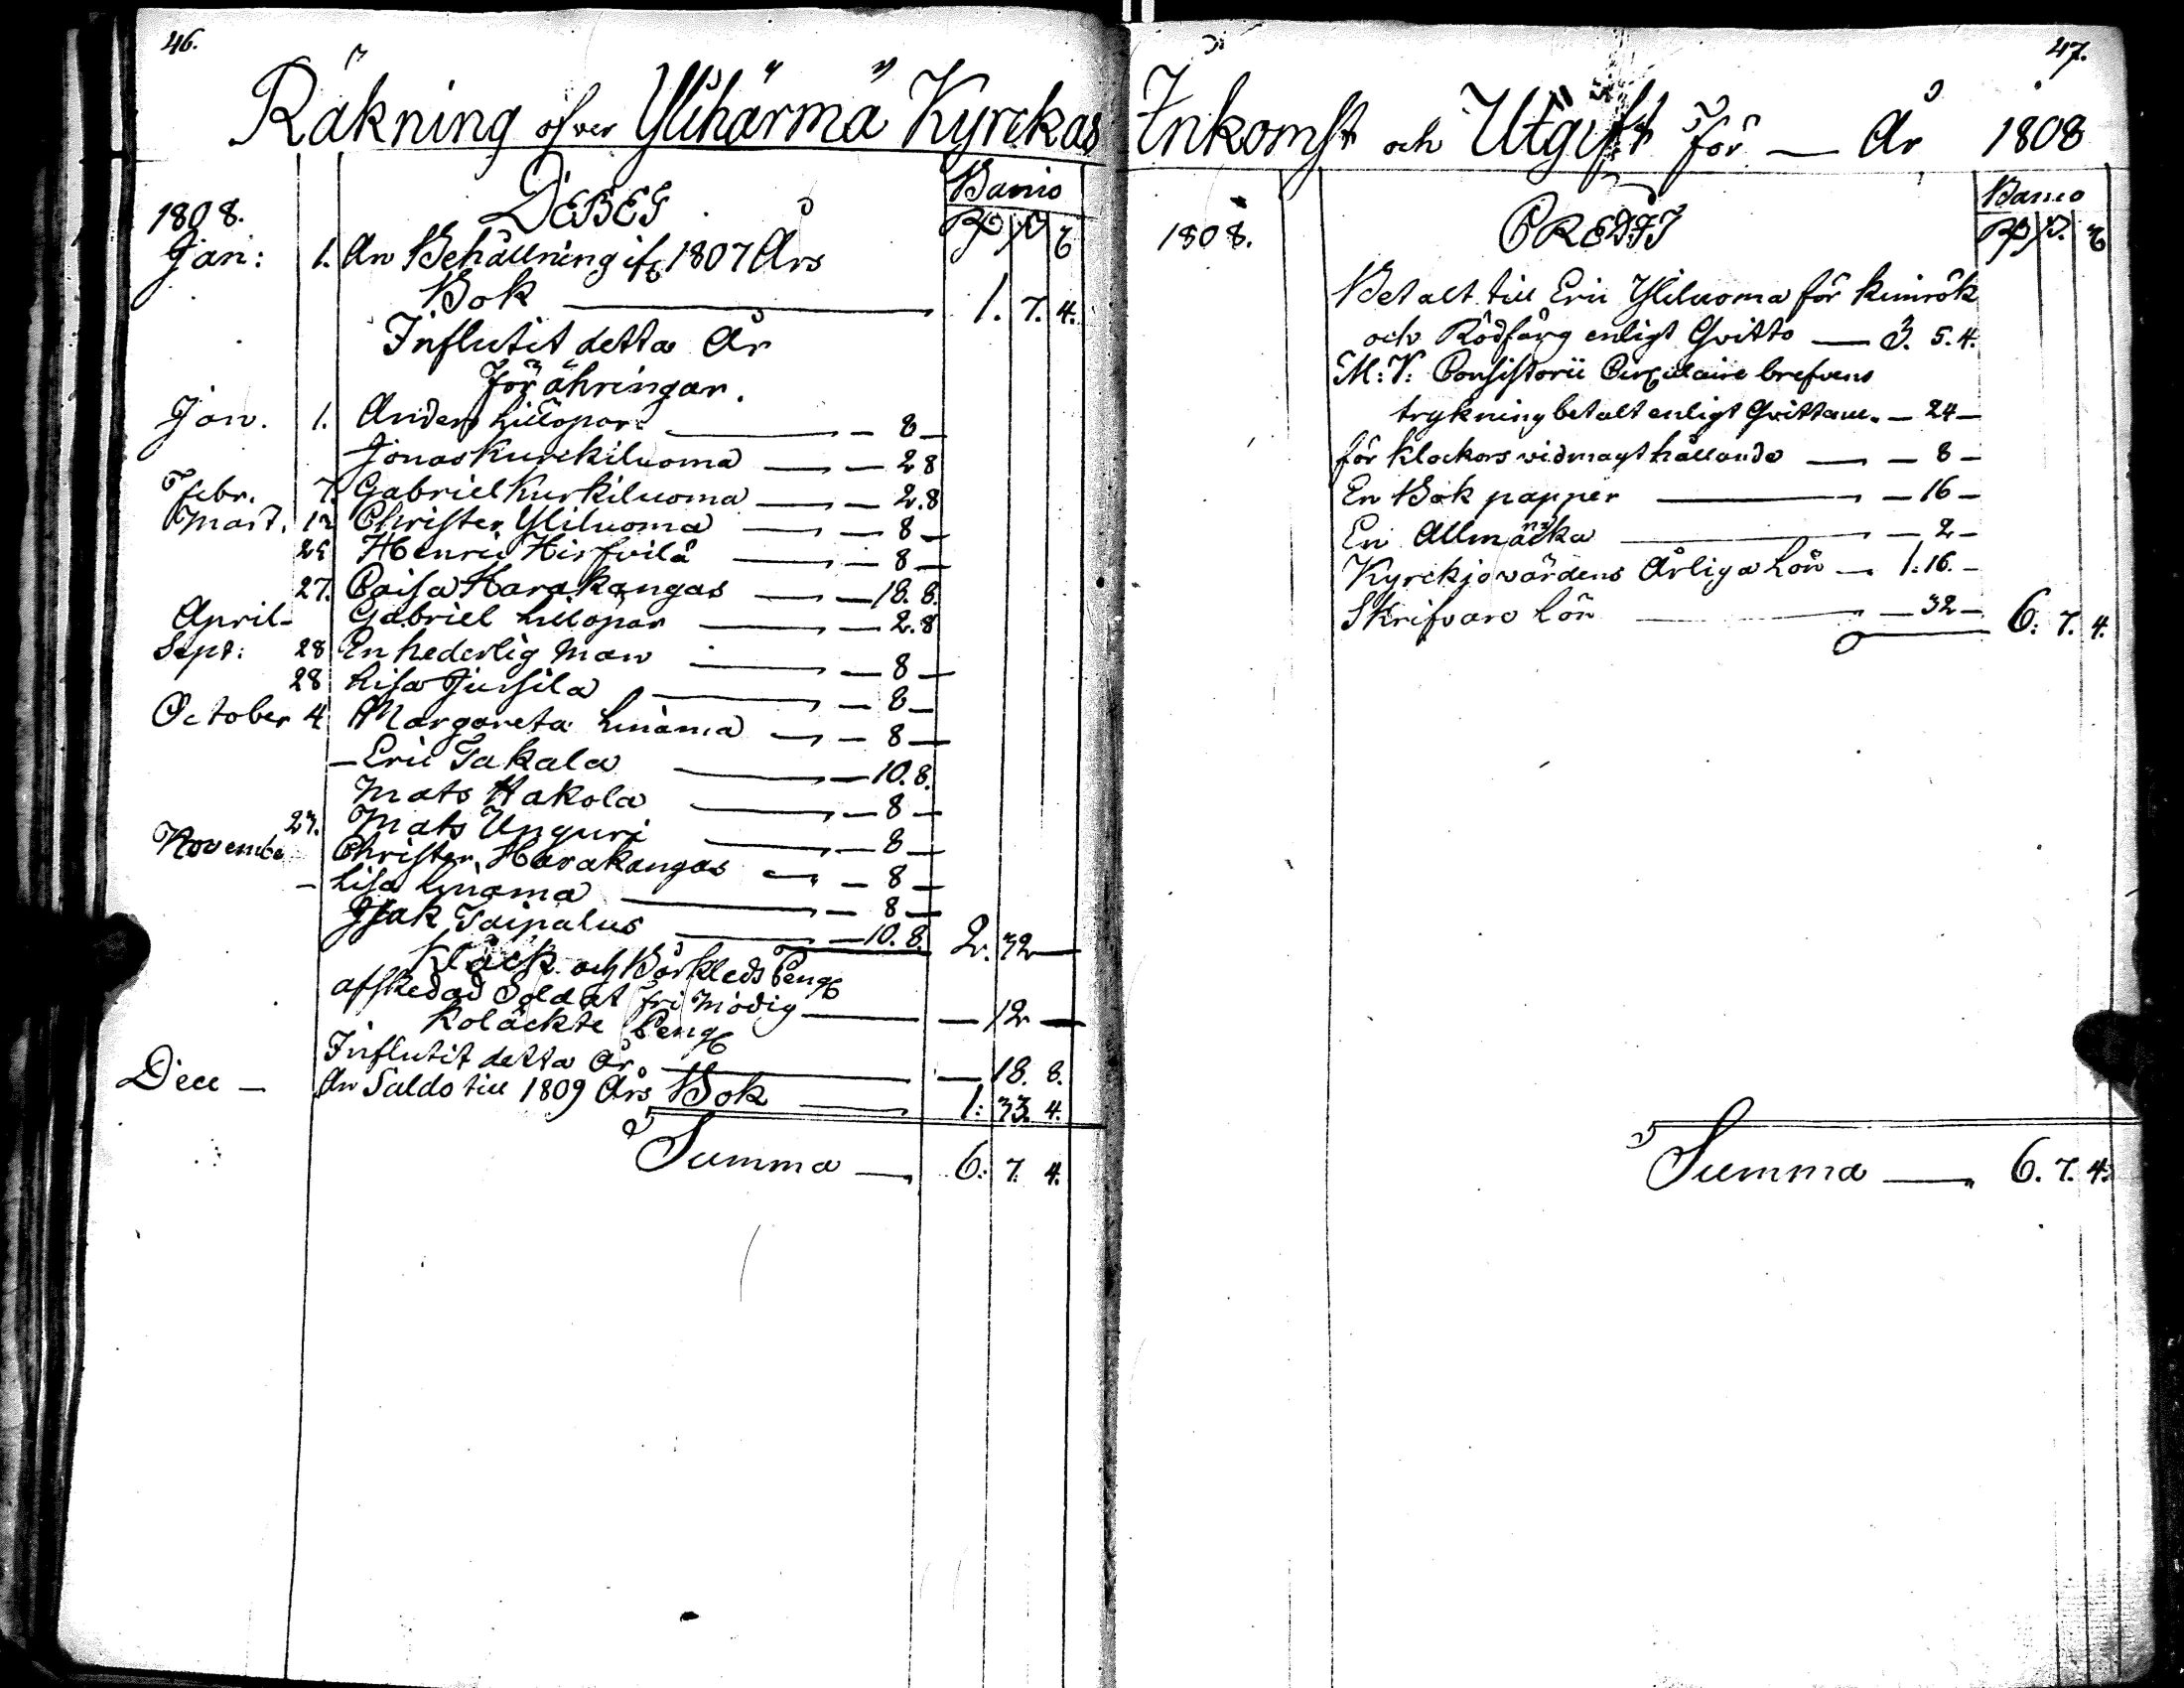 46.
Räkning öfver Ylihärmä Kyrckas
Banco
1808. DEBET
Jan: 1. An Behållning ifr 1807 Års
Bok — 1. 7. 4.
Influtit detta År
för åhringar.
Jan. 1. Anders Lillopar — — 8 —
Jonas Kurckiluoma — — 2 8
Febr. 7. Gabriel Kurkiluoma — — 2. 8
Mart. 12 Christer Yliluoma — — 8 —
25 Henric Hirfvilä — — 8 —
27. Caisa Harakangas — — 18. 8.
April — Gabriel Lillopar — — 2. 8
Sept: 28 En hederlig Man — — 8 —
28 Lisa Jussila — — 8 —
October 4 Margareta Linama — — 8 —
— Eric Takala — — 10. 8.
Mats Hakola — — 8 —
27. Mats Unguri — — 8 —
Novembe Christer Harakangas — — 8 —
— Lisa Linama — — 8 —
Isak Taipalus — — 10. 8. 2. 32 —
Kläck och Bårkleds Peng
afskedad Soldat fri Modig — — 12 —
Koläckte Peng
Influtit detta År — — 18. 8.
Dec — An Saldo till 1809 Års Bok — 1: 33. 4.
Summa — 6: 7. 4.
47.
Inkomst och Utgift för — År 1808
Banco
1808. CREDIT
Betalt till Eric Yliluoma för kimrök
och Rödfärg enligt Qvitto — 3. 5. 4.
M: V: Consistorii Circulaire brefvens
trykning betalt enligt Qvittance — 24 —
för klockors vidmagthållande — — 8 —
En Bok papper — — 16 —
En Allmänacka — — 2 —
Kyrckjovärdens Årliga Lön — 1: 16. —
Skrifvare lön — — 32 — 6: 7. 4.
Summa — 6. 7. 4.